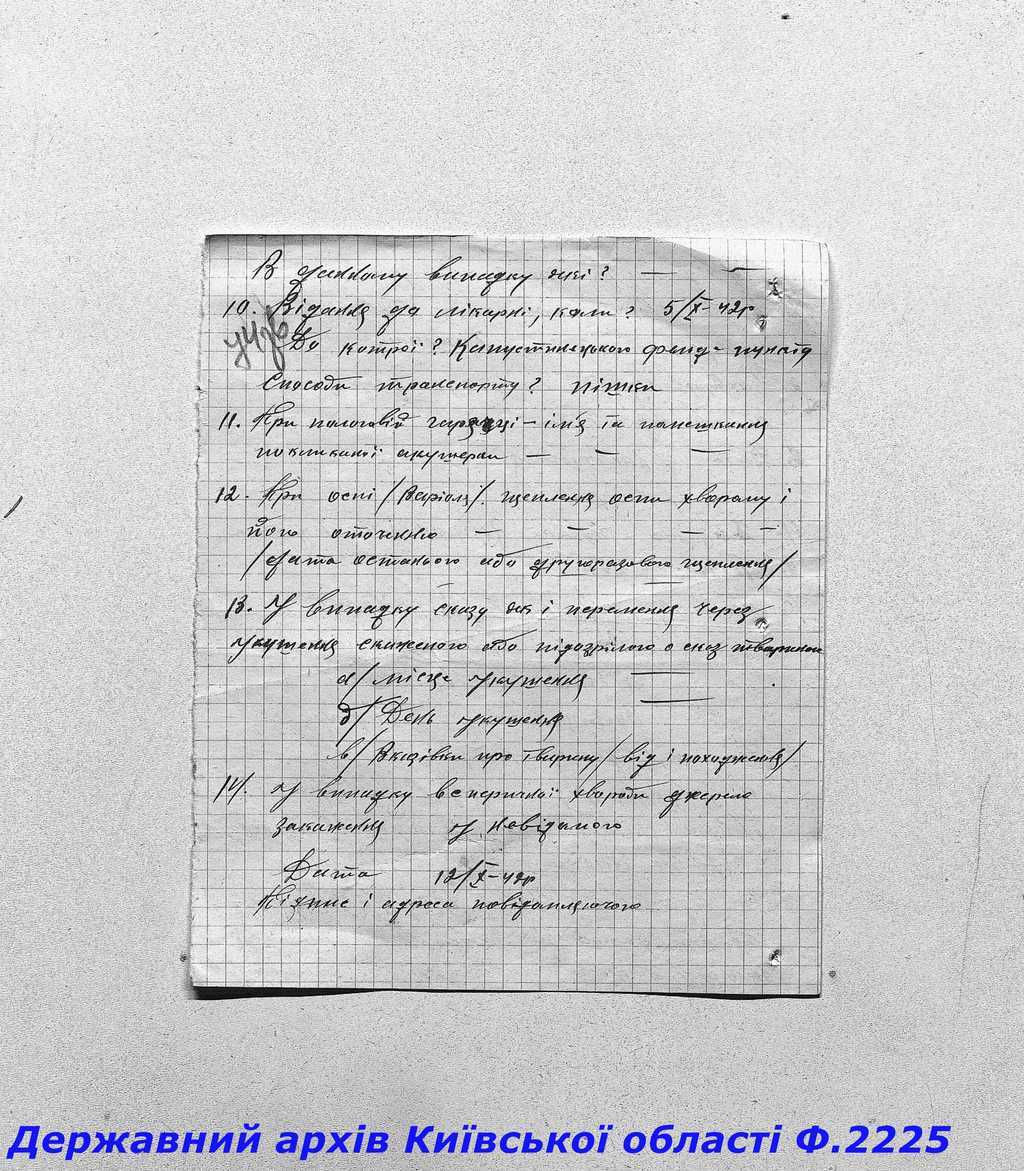 В данному випадку які? — —
10. Відання до лікарні, коли? 5/X-42р
До котрої? Капустинецького фельд-пункту
Способи транспорту? пішки
11. При пологовій гарячці – ім'я та помешкання
покликаної акушерки — — —
12. При оспі /Варіоля/. щеплення оспи хворому і
його оточенню — — — —
/дата останього або другоразового щеплення/
— —
13. У випадку сказу як і перемення через
укушення скаженого або підозрілого о сказ твариною
а/ місце укушення —
б/ День укушення —
в/ Вказівки про тварину/ від і походження/
14. У випадку венеричної хвороби джерело
закаження У невідомого
Дата 12/X-42р
Підпис і адреса повідомляючого
Державний архів Київської області Ф.2225